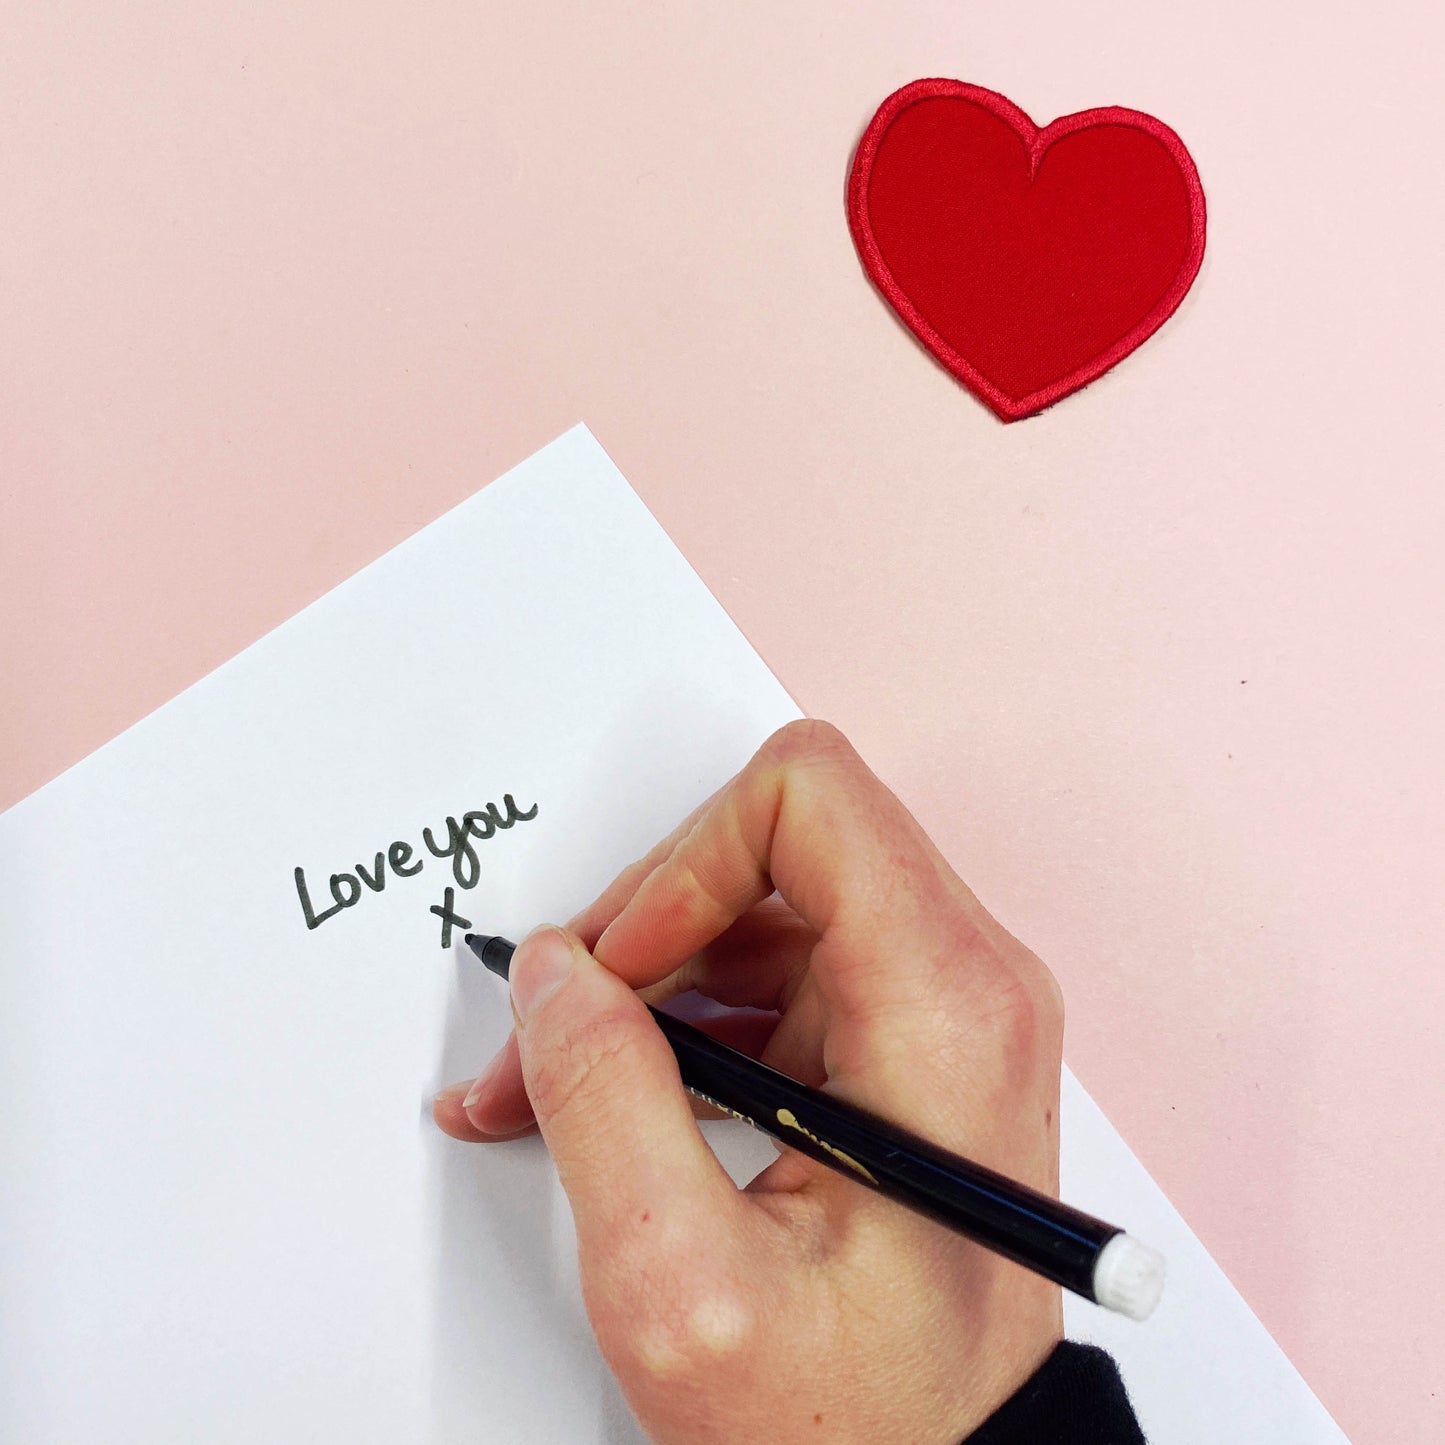 Love you
x